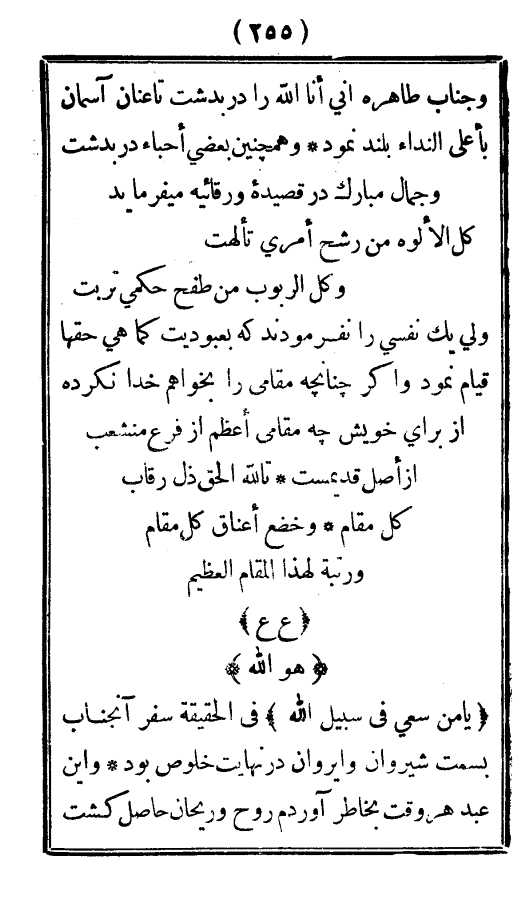 (٢٥٥)
وجناب طاهره اني أنا الله را در بدشت تاعنان آسمان
بأعلى النداء بلند نمود * وهمچنين بعضي أحباء در بدشت
وجمال مبارك در قصيدۀ ورقائيه ميفرمايد
كل الألوه من رشح أمري تألهت
وكل الربوب من طفح حكمي تربت
ولي يك نفسي را نفرمودند كه بعبوديت كما هي حقها
قيام نمود واكر چنانچه مقامى را بخواهم خدا نكرده
از براي خويش چه مقامى أعظم از فرع منشعب
از أصل قديمست * تالله الحق ذل رقاب
كل مقام * وخضع أعناق كل مقام
ورتبة لهذا المقام العظيم
﴿ ع ع ﴾
﴿ هو الله ﴾
﴿ يامن سعي فى سبيل الله ﴾ فى الحقيقة سفر آنجناب
بسمت شيروان وايروان در نهايت خلوص بود * واين
عبد هر وقت بخاطر آوردم روح وريحان حاصل كشت